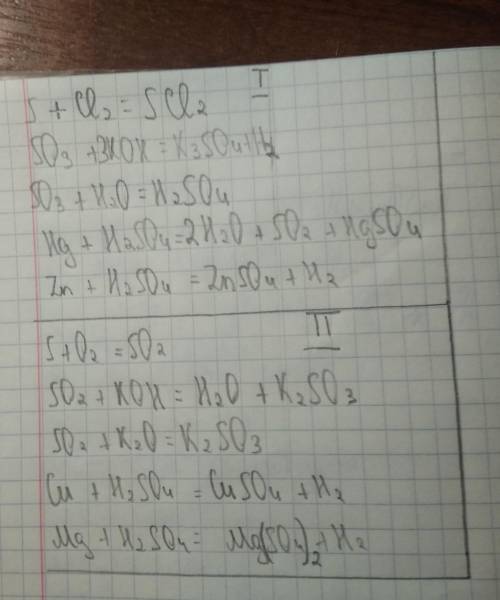 I
S + Cl2 = SCl2
SO3 + 3KOH = K3SO4 + H2
SO3 + H2O = H2SO4
Hg + H2SO4 = 2H2O + SO2 + HgSO4
Zn + H2SO4 = ZnSO4 + H2
II
S + O2 = SO2
SO2 + KOH = H2O + K2SO3
SO2 + K2O = K2SO3
Cu + H2SO4 = CuSO4 + H2
Mg + H2SO4 = Mg(SO4)2 + H2